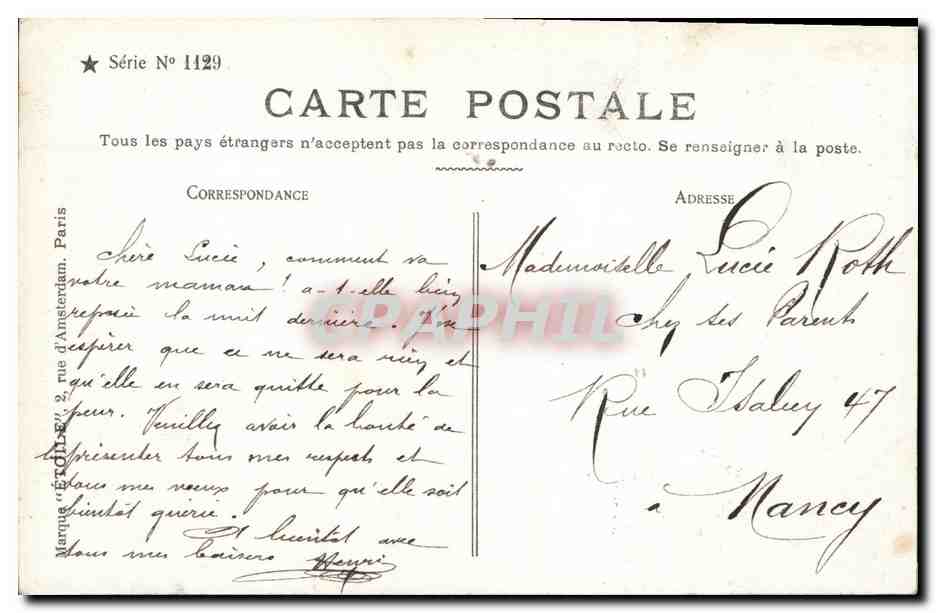 ★ Série Nº 1129
CARTE POSTALE
Tous les pays étrangers n'acceptent pas la correspondance au recto. Se renseigner à la poste.
CORRESPONDANCE
Chère Lucie, comment va
votre maman! a-t-elle bien
reposée la nuit dernière. J'ose
espérer que ce ne sera rien et
qu'elle en sera quitte pour la
peur. Veuillez avoir la bonté de
lui présenter tous mes respects et
tous mes vœux pour qu'elle soit
bientôt guérie.
A bientôt avec
tous mes baisers Henri
ADRESSE
Mademoiselle Lucie Roth
chez ses Parents
Rue Isabey 47
a Nancy
Marque "ÉTOILE", 2, rue d'Amsterdam. Paris
CPAPHIL